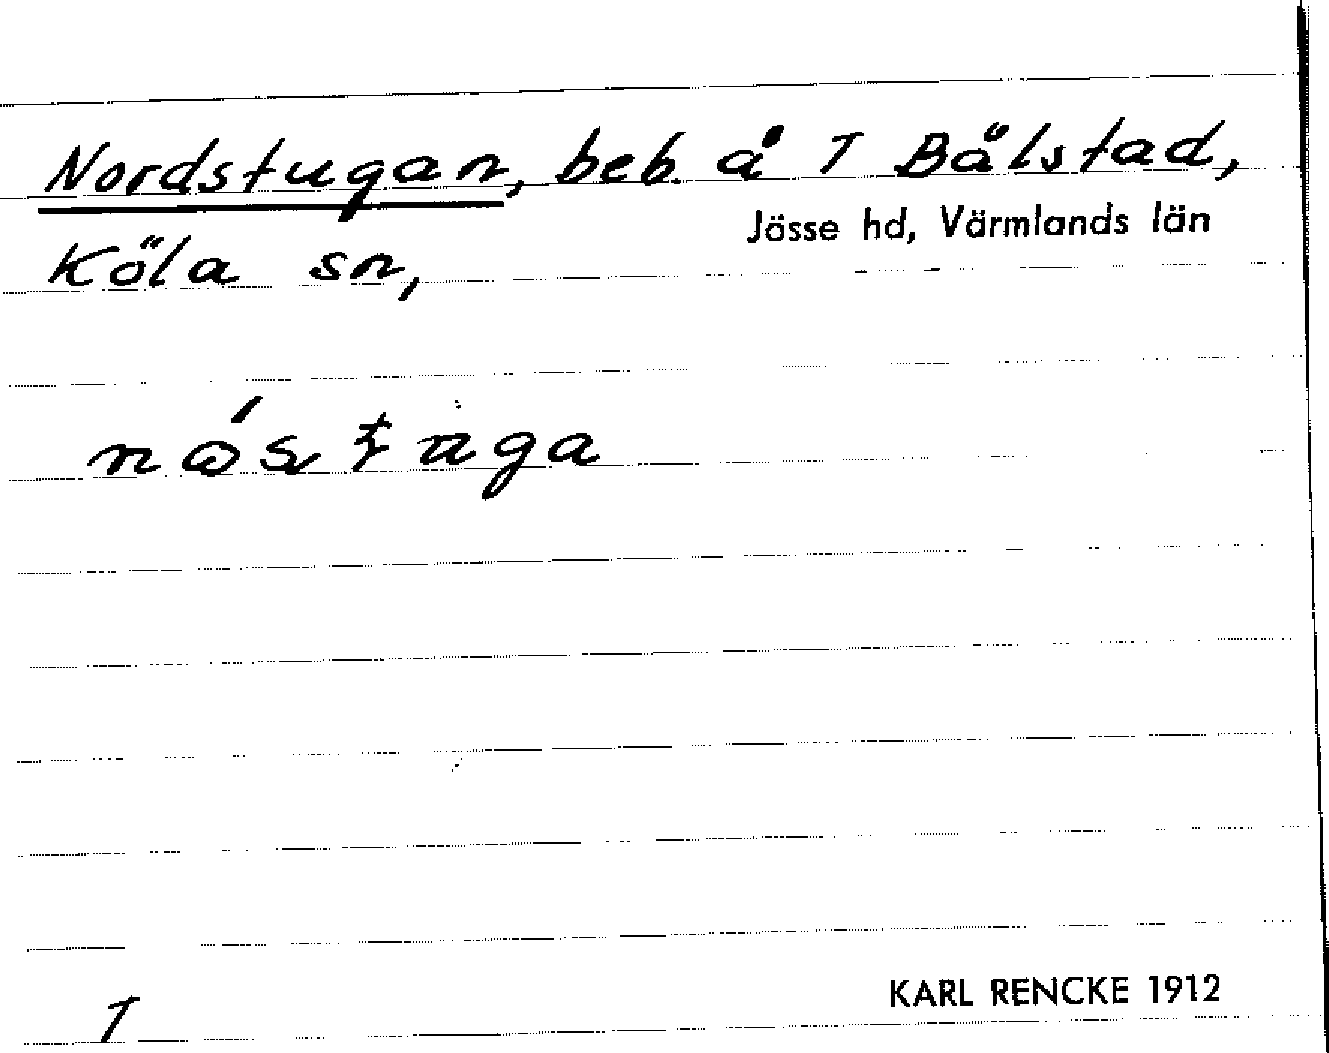 Nordstugan, beb. å 1 Bålstad,
Jösse hd, Värmlands län
Köla sn,
1
KARL RENCKE 1912